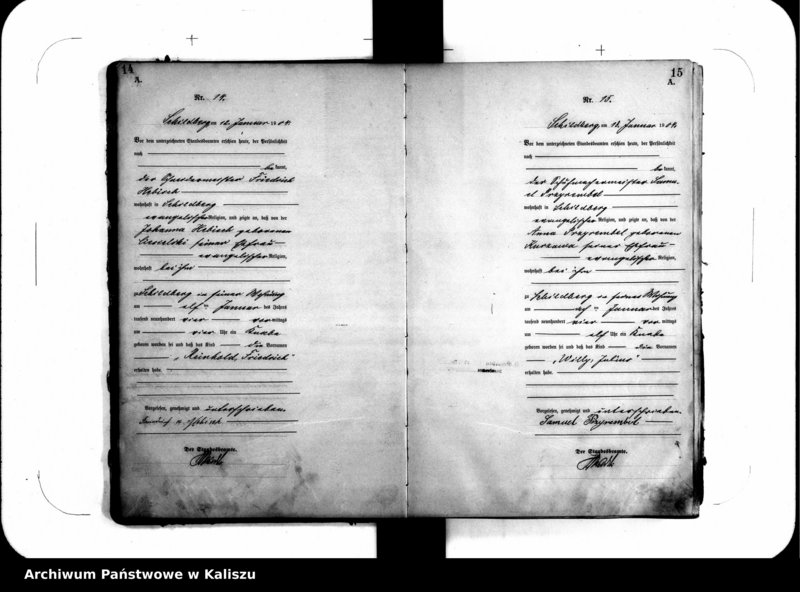 14
A.
Nr. 14.
Schildberg, am 12. Januar 1904.
Vor dem unterzeichneten Standesbeamten erschien heute, der Persönlichkeit
nach
be kannt,
der Friedrich
Hebisch
wohnhaft in Schildberg
evangelischer Religion, und zeigte an, daß von der
Johanna Hebisch geborenen
seiner Ehefrau
evangelischer Religion,
wohnhaft bei ihm
zu Schildberg in seiner Wohnung
am elf ten Januar des Jahres
tausend neunhundert vier vor mittags
um vier Uhr ein Knabe
geboren worden sei und daß das Kind die Vornamen
„Reinhold, Friedrich“
erhalten habe.
Vorgelesen, genehmigt und unterschrieben.
Hebisch
Der Standesbeamte.
15
A.
Nr. 15.
Schildberg, am 12. Januar 1904.
Vor dem unterzeichneten Standesbeamten erschien heute, der Persönlichkeit
nach
be kannt,
der Schuhmachermeister Samu-
el Przyrembel
wohnhaft in Schildberg
evangelischer Religion, und zeigte an, daß von der
Anna Przyrembel geborenen
Kurzawa seiner Ehefrau
evangelischer Religion,
wohnhaft bei ihm
zu Schildberg in seiner Wohnung
am ten Januar des Jahres
tausend neunhundert vier vor mittags
um elf Uhr ein Knabe
geboren worden sei und daß das Kind die Vornamen
„Willy, Julius“
erhalten habe.
Vorgelesen, genehmigt und unterschrieben.
Samuel Przyrembel
Der Standesbeamte.
Archiwum Państwowe w Kaliszu